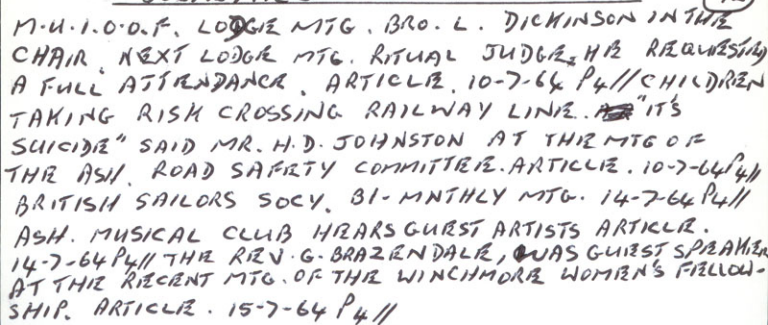 M.U.I.O.O.F. LODGE MTG. BRO. L. DICKINSON IN THE
CHAIR. NEXT LODGE MTG. RITUAL JUDGE, HE REQUESTED
A FULL ATTENDANCE. ARTICLE. 10-7-64 P4// CHILDREN
TAKING RISK CROSSING RAILWAY LINE. "IT'S
SUICIDE" SAID MR. H.D. JOHNSTON AT THE MTG OF
THE ASH. ROAD SAFETY COMMITTEE. ARTICLE. 10-7-64 P4//
BRITISH SAILORS SOCY. BI-MNTHLY MTG. 14-7-64 P4//
ASH. MUSICAL CLUB HEARS GUEST ARTISTS ARTICLE.
14-7-64 P4// THE REV. G. BRAZENDALE, WAS GUEST SPEAKER
AT THE RECENT MTG. OF THE WINCHMORE WOMEN'S FELLOW-
SHIP. ARTICLE. 15-7-64 P4//